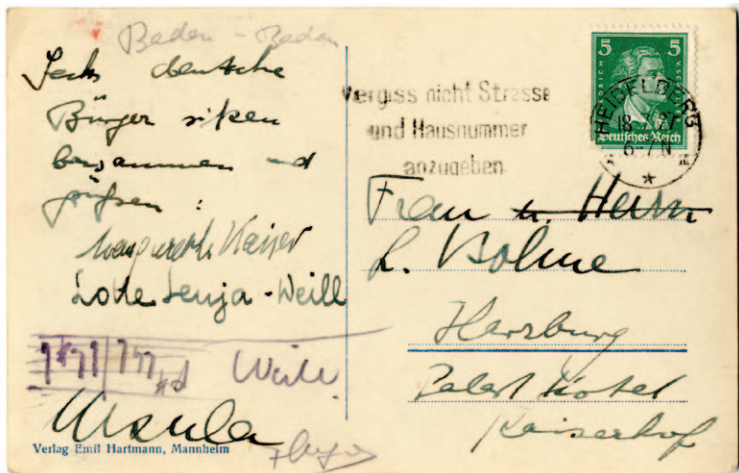 Baden-Baden
Sechs deutsche
Bürger sitzen
beisammen und
grüßen:
Margarethe Kaiser
Lotte Lenja-Weill
Weill
Ursula
Verlag Emil Hartmann, Mannheim
Vergiss nicht Strasse
und Hausnummer
anzugeben
5 5
FRIEDRICH V. SCH
Deutsches Reich
HEIDELBERG
18.7.27
6-7 N
Frau u. Herrn
L. Bohne
Harzburg
Palast Hotel
Kaiserhof